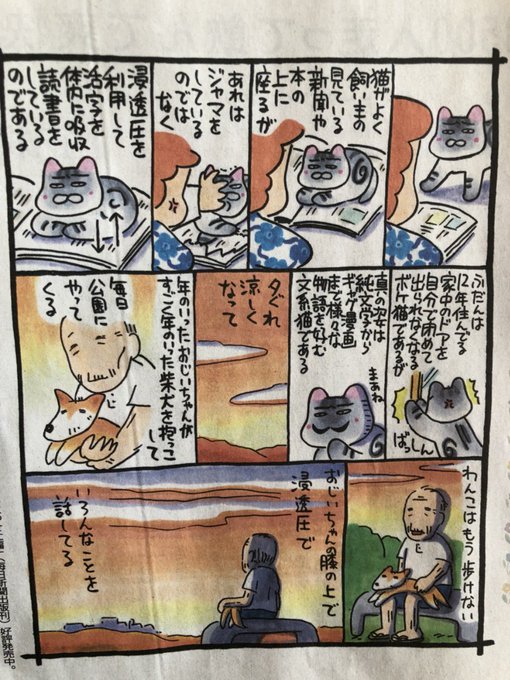 猫がよく
飼い主の
見ている
新聞や
本の
上に
座るが
あれは
ジャマを
している
のでは
なく
浸透圧を
利用して
活字を
体内に吸収
読書を
している
のである
ふだんは
12年住んでる
家中のドアを
自分で閉めて
出られなくなる
ボケ猫であるが
まあね
真の姿は
純文学から
ギャグ漫画
まで様々な
物語を好む
文系猫である
夕ぐれ
涼しく
なって
年のいったおじいちゃんが
すごく年のいった柴犬を抱っこして
毎日
公園に
やって
くる
わんこはもう 歩けない
おじいちゃんの膝の上で
浸透圧で
いろんなことを
話してる
(毎日新聞出版刊)好評発売中。